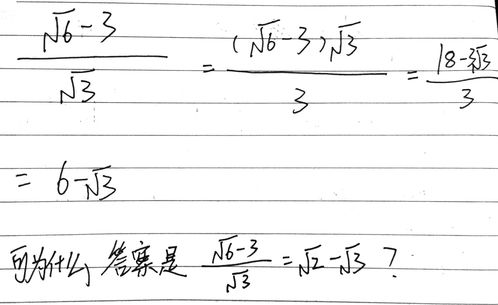 (√6-3)/√3 = (√6-3)√3/3 = (18-3√3)/3
= 6-√3
可为什么, 答案是 (√6-3)/√3 = √2-√3 ?